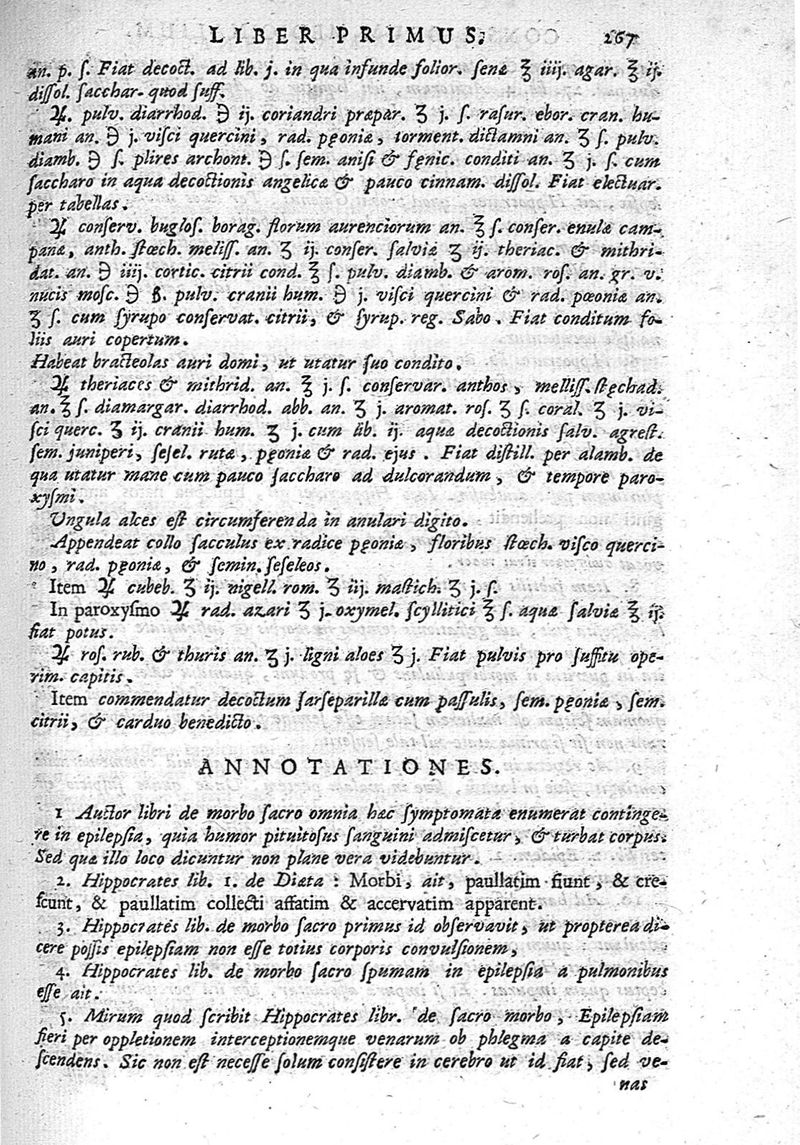 LIBER PRIMUS. 267
an. p. ſ. Fiat decoct. ad lib. j. in qua infunde folior. ſenæ ℥ iiij. agar. ℥ ij.
diſſol. ſacchar. quod ſuff.
♃. pulv. diarrhod. ℈ ij. coriandri præpar. ʒ j. ſ. raſur. ebor. cran. hu-
mani an. ℈ j. viſci quercini, rad. pęoniæ, torment. dictamni an. ʒ ſ. pulv.
diamb. ℈ ſ. plires archont. ℈ ſ. ſem. aniſi & fęnic. conditi an. ʒ j. ſ. cum
ſaccharo in aqua decoctionis angelicæ & pauco cinnam. diſſol. Fiat electuar.
per tabellas.
♃ conſerv. bugloſ. borag. florum aurenciorum an. ℥ ſ. conſer. enulæ cam-
panæ, anth. ſtœch. meliſſ. an. ʒ ij. conſer. ſalviæ ʒ ij. theriac. & mithri-
dat. an. ℈ iiij. cortic. citrii cond. ℥ ſ. pulv. diamb. & arom. roſ. an. gr. v.
nucis moſc. ℈ ß. pulv. cranii hum. ℈ j. viſci quercini & rad. pœoniæ an.
ʒ ſ. cum ſyrupo conſervat. citrii, & ſyrup. reg. Sabo. Fiat conditum fo-
liis auri copertum.
Habeat bracteolas auri domi, ut utatur ſuo condito.
♃ theriaces & mithrid. an. ℥ j. ſ. conſervar. anthos, melliſſ. ſtęchad.
an. ℥ ſ. diamargar. diarrhod. abb. an. ʒ j. aromat. roſ. ʒ ſ. coral. ʒ j. vi-
ſci querc. ʒ ij. cranii hum. ʒ j. cum lib. ij. aquæ decoctionis ſalv. agreſt.
ſem. juniperi, ſeſel. rutæ, pęoniæ & rad. ejus. Fiat diſtill. per alamb. de
qua utatur mane cum pauco ſaccharo ad dulcorandum, & tempore paro-
xyſmi.
Ungula alces eſt circumferenda in anulari digito.
Appendeat collo ſacculus ex radice pęoniæ, floribus ſtœch. viſco querci-
no, rad. pęoniæ, & ſemin. ſeſeleos.
Item ♃ cubeb. ʒ ij. nigell. rom. ʒ iij. maſtich. ʒ j. ſ.
In paroxyſmo ♃ rad. azari ʒ j. oxymel. ſcyllitici ℥ ſ. aquæ ſalviæ ℥ ij.
fiat potus.
♃ roſ. rub. & thuris an. ʒ j. ligni aloes ʒ j. Fiat pulvis pro ſuffitu ope-
rim. capitis.
Item commendatur decoctum ſarſeparillæ cum paſſulis, ſem. pęoniæ, ſem.
citrii, & carduo benedicto.
ANNOTATIONES.
1 Auctor libri de morbo ſacro omnia hæc ſymptomata enumerat continge-
re in epilepſia, quia humor pituitoſus ſanguini admiſcetur, & turbat corpus.
Sed quæ illo loco dicuntur non plane vera videbuntur.
2. Hippocrates lib. 1. de Diæta : Morbi, ait, paullatim fiunt, & cre-
ſcunt, & paullatim collecti affatim & accervatim apparent.
3. Hippocrates lib. de morbo ſacro primus id obſervavit, ut propterea di-
cere poſſis epilepſiam non eſſe totius corporis convulſionem,
4. Hippocrates lib. de morbo ſacro ſpumam in epilepſia a pulmonibus
eſſe ait.
5. Mirum quod ſcribit Hippocrates libr. de ſacro morbo, Epilepſiam
fieri per oppletionem interceptionemque venarum ob phlegma a capite de-
ſcendens. Sic non eſt neceſſe ſolum conſiſtere in cerebro ut id fiat, ſed ve-
nas